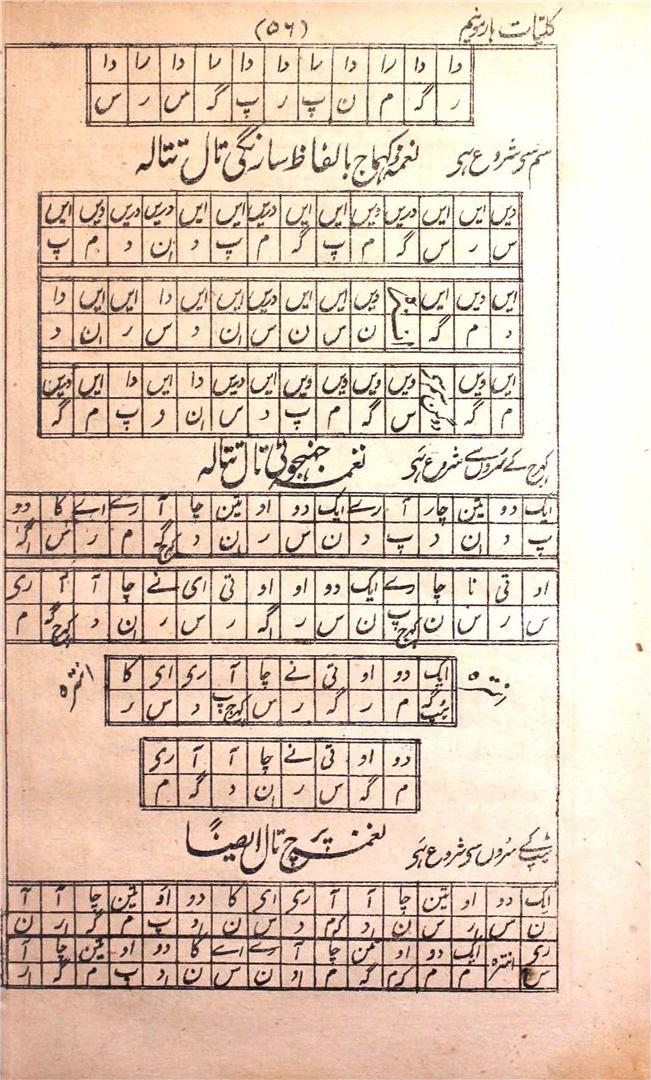 کلیات ہارمونیم (۵۶)
دا دا را دا دا را دا را دا را دا
ر گ م ن پ ر پ گ س ر س
سم سے شروع ہی نغمہ کہماج بالفاظ سارنگی تال تتالہ
دیں ایں ایں دریں دیں ایں ایں دریں ایں ایں دریں دریں دیں ایں
س ر س گ م پ گ م پ د ن د م پ
ایں دیں ایں دیں ایں ایں دریں ایں ایں دا ایں ایں دا
د م گ ن س ن س ن د س ر ن د
ایں ویں ویں ویں ویں ویں ایں دریں دا ایں دا ایں دریں
م گ س گ م پ د س ن د پ م گ
کہرج کے سروں سے شروع ہی نغمہ جنجہوٹی تال تتالہ
ایک دو تین چار آ رے ایک دو او تین چا آ رے اے کا دو
پ د ن د پ د ن س ر ن د کہرج گ م ر س گ
او تی نا چا رے ایک دو او او تی ای نے چا آ آ ری
س ر س ن کہرج پ ن س ر گ ر س ر ن د کہرج گ م
انترہ ایک دو او تی نے چا آ ری ای کا انترہ
ٹیپ گ م ر گ ر س کہرج پ د س ر
دو او تی نے چا آ آ ری
م گ س ر ن د گ م
ٹیپ کے سروں سی شروع ہی نغمہ پرچ تال ایضاً
ایک دو او تین چا آ آ ری ای کا دو او تین چا آ آ
ن س ر س ن د کرم د س ن د پ م گ ر ن
ری انترہ ایک دو او تین چا آ رے اے کا دو او تین چا آ
س م م کرم گ م د ن س ن د پ م گ ر